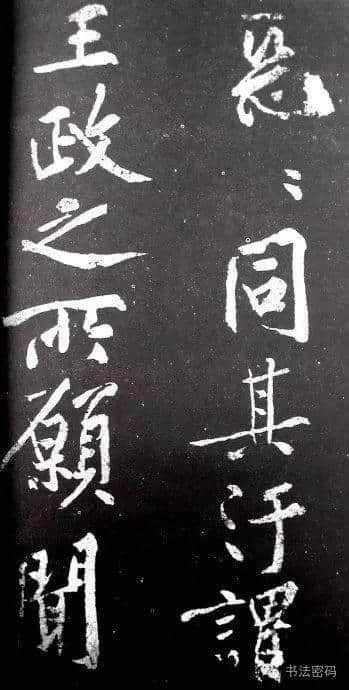 惡〻同其汙謂
王政之所願聞
书法密码